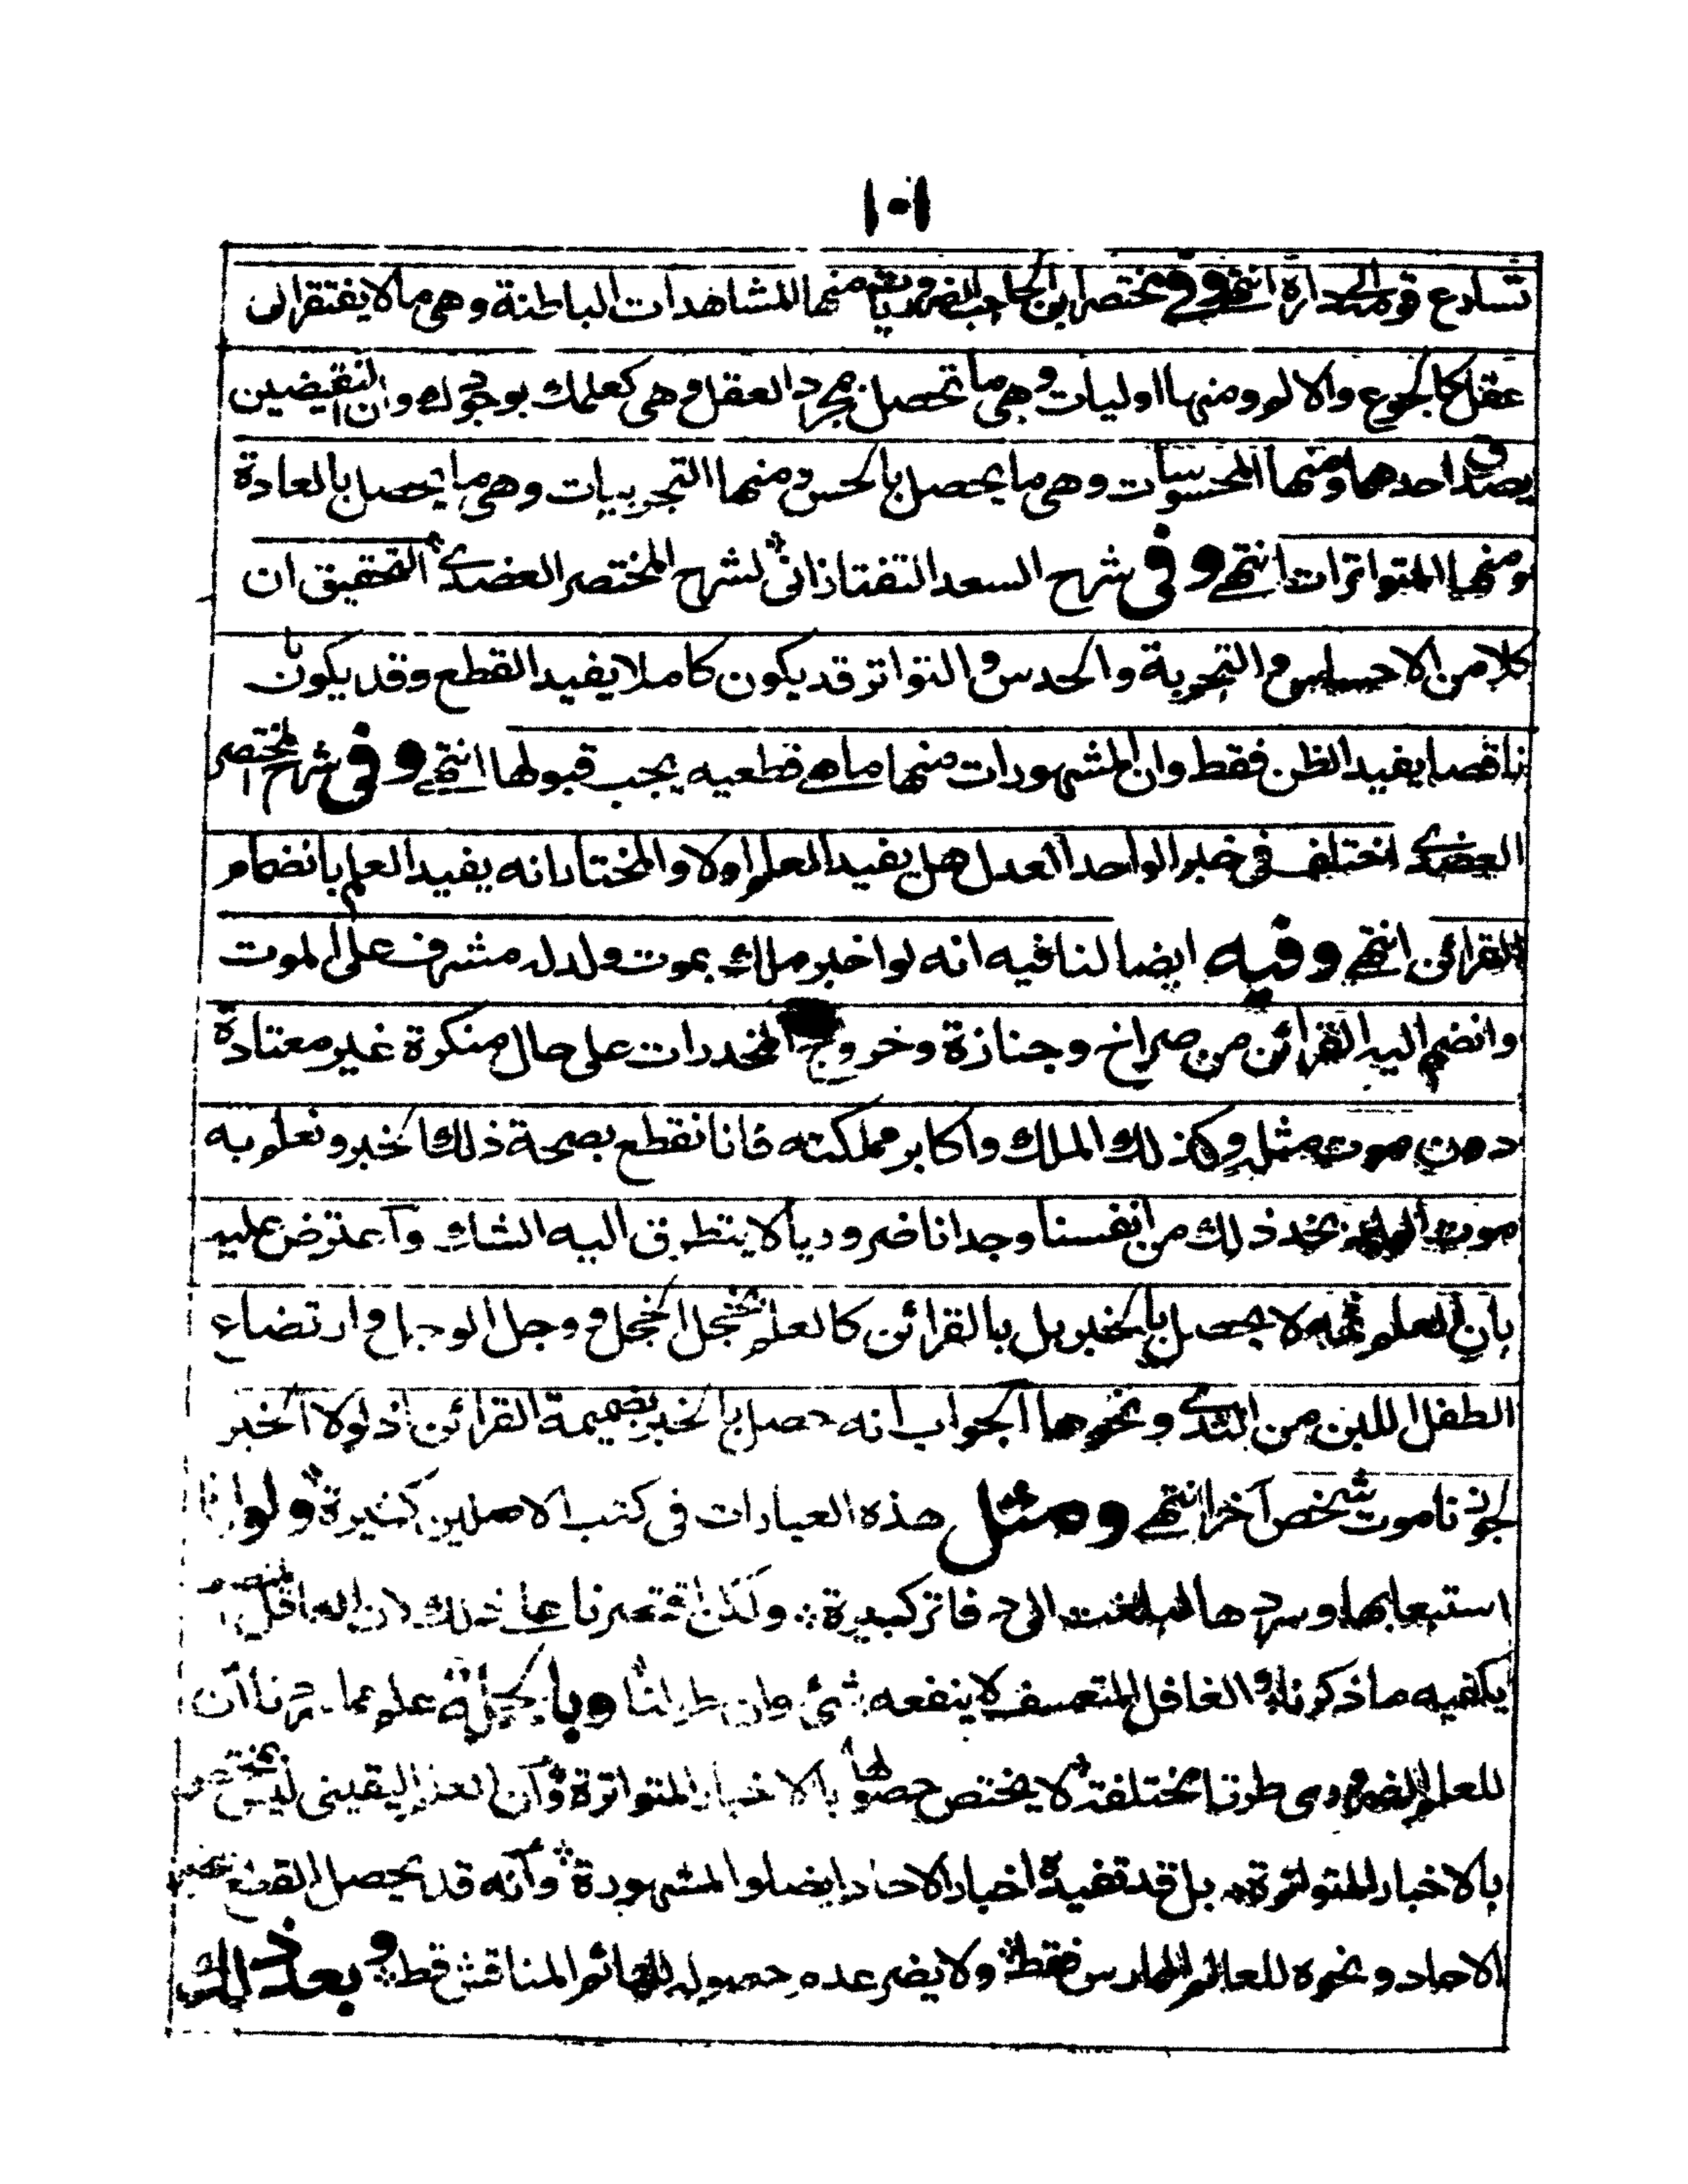 ١٠١
تسارع قوم الى داره انتهى وفي مختصر ابن الحاجب الضروريات منها المشاهدات الباطنة وهى ما لا يفتقر الى
عقل كالجوع والالم ومنها اوليات وهى ما تحصل بمجرد العقل وهى كعلمك بوجودك وان النقيضين
يصدق احدهما ومنها المحسوسات وهى ما يحصل بالحس ومنها التجربيات وهى ما يحصل بالعادة
ومنها المتواترات انتهى وفى شرح السعد التفتازانى لشرح المختصر العضدى التحقيق ان
كلا من الاحساس والتجربة والحدس والتواتر قد يكون كاملا يفيد القطع وقد يكون
ناقصا يفيد الظن فقط وان المشهورات منها ما هى قطعيه يجب قبولها انتهى وفى شرح المختصر
العضدى اختلف فى خبر الواحد العدل هل يفيد العلم اولا والمختار انه يفيد العلم بانضمام
القرائن انتهى وفيه ايضا لنا فيه انه لو اخبر ملك بموت ولد له مشرف على الموت
وانضم اليه القرائن من صراخ وجنازة وخروج المخدرات على حال منكرة غير معتادة
دون موت مثله وكذلك الملك واكابر مملكته فانا نقطع بصحة ذلك الخبر ونعلم به
موت الولد نجد ذلك من انفسنا وجدانا ضروريا لا يتطرق اليه الشك وآعترض عليه
بان العلم ثمه لا يحصل بالخبر بل بالقرائن كالعلم بخجل الخجل ووجل الوجل وارتضاع
الطفل اللبن من الثدى ونحوها الجواب انه حصل بالخبر بضميمة القرائن اذ لولا الخبر
لجوزنا موت شخص آخر انتهى ومثل هذه العبارات فى كتب الاصلين كثيرة ولو اردنا
استيعابها وسردها لبلغت الى دفاتر كبيرة ولكن اقتصرنا على ذلك لان العاقل
يكفيه ما ذكرنا والغافل المتعسف لا ينفعه شئ وان طولنا وبالجملة علم مما حررنا ان
للعلم الضرورى طرقا مختلفة لا يختص حصولها بالاخبار المتواترة وآن العلم اليقينى ليس
بالاخبار المتواترة بل قد تفيده اخبار الاحاد ايضا والمشهورة وآنه قد يحصل القطع بخبر
الاحاد ونحوه للعالم الممارس فقط ولا يضر عدم حصوله للهائم المناقش قط وبعد ذلك